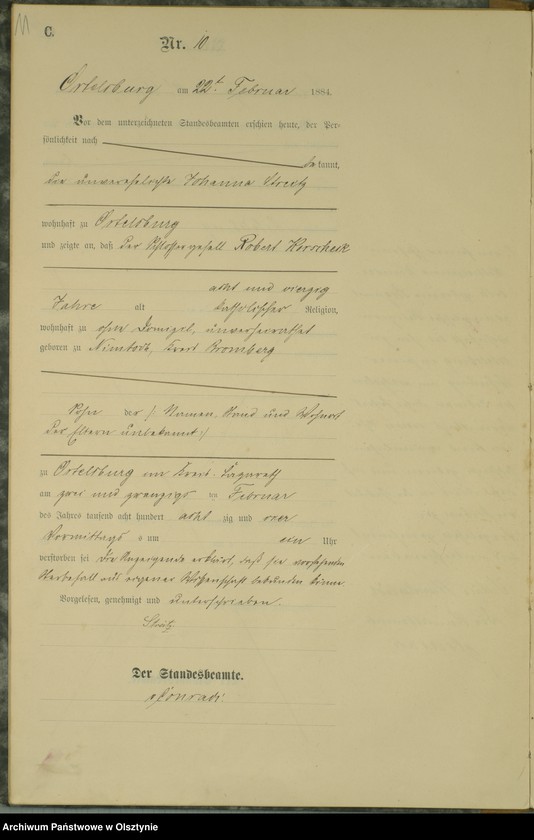 11
C.
Nr. 10
Ortelsburg am 22ten Februar 1884.
Vor dem unterzeichneten Standesbeamten erschien heute, der Per-
sönlichkeit nach
kannt,
die unverehelichte Johanna
wohnhaft zu Ortelsburg
und zeigte an, daß der Schlossergesell Robert
acht und vierzig
Jahre alt katholischer Religion,
wohnhaft zu ohne Domizil, unverheirathet
geboren zu Kreis Bromberg
Sohn der /: Namen, Stand und Wohnort
der Eltern unbekannt :/
zu Ortelsburg im Kreis Lazareth
am zwei und zwanzigs ten Februar
des Jahres tausend acht hundert acht zig und vier
Vormittags um ein Uhr
verstorben sei die Anzeigende erklärt, daß sie vorstehenden
Sterbefall aus eigener Wissenschaft bekunden könne.
Vorgelesen, genehmigt und unterschrieben.
Der Standesbeamte.
Conradi
Archiwum Państwowe w Olsztynie